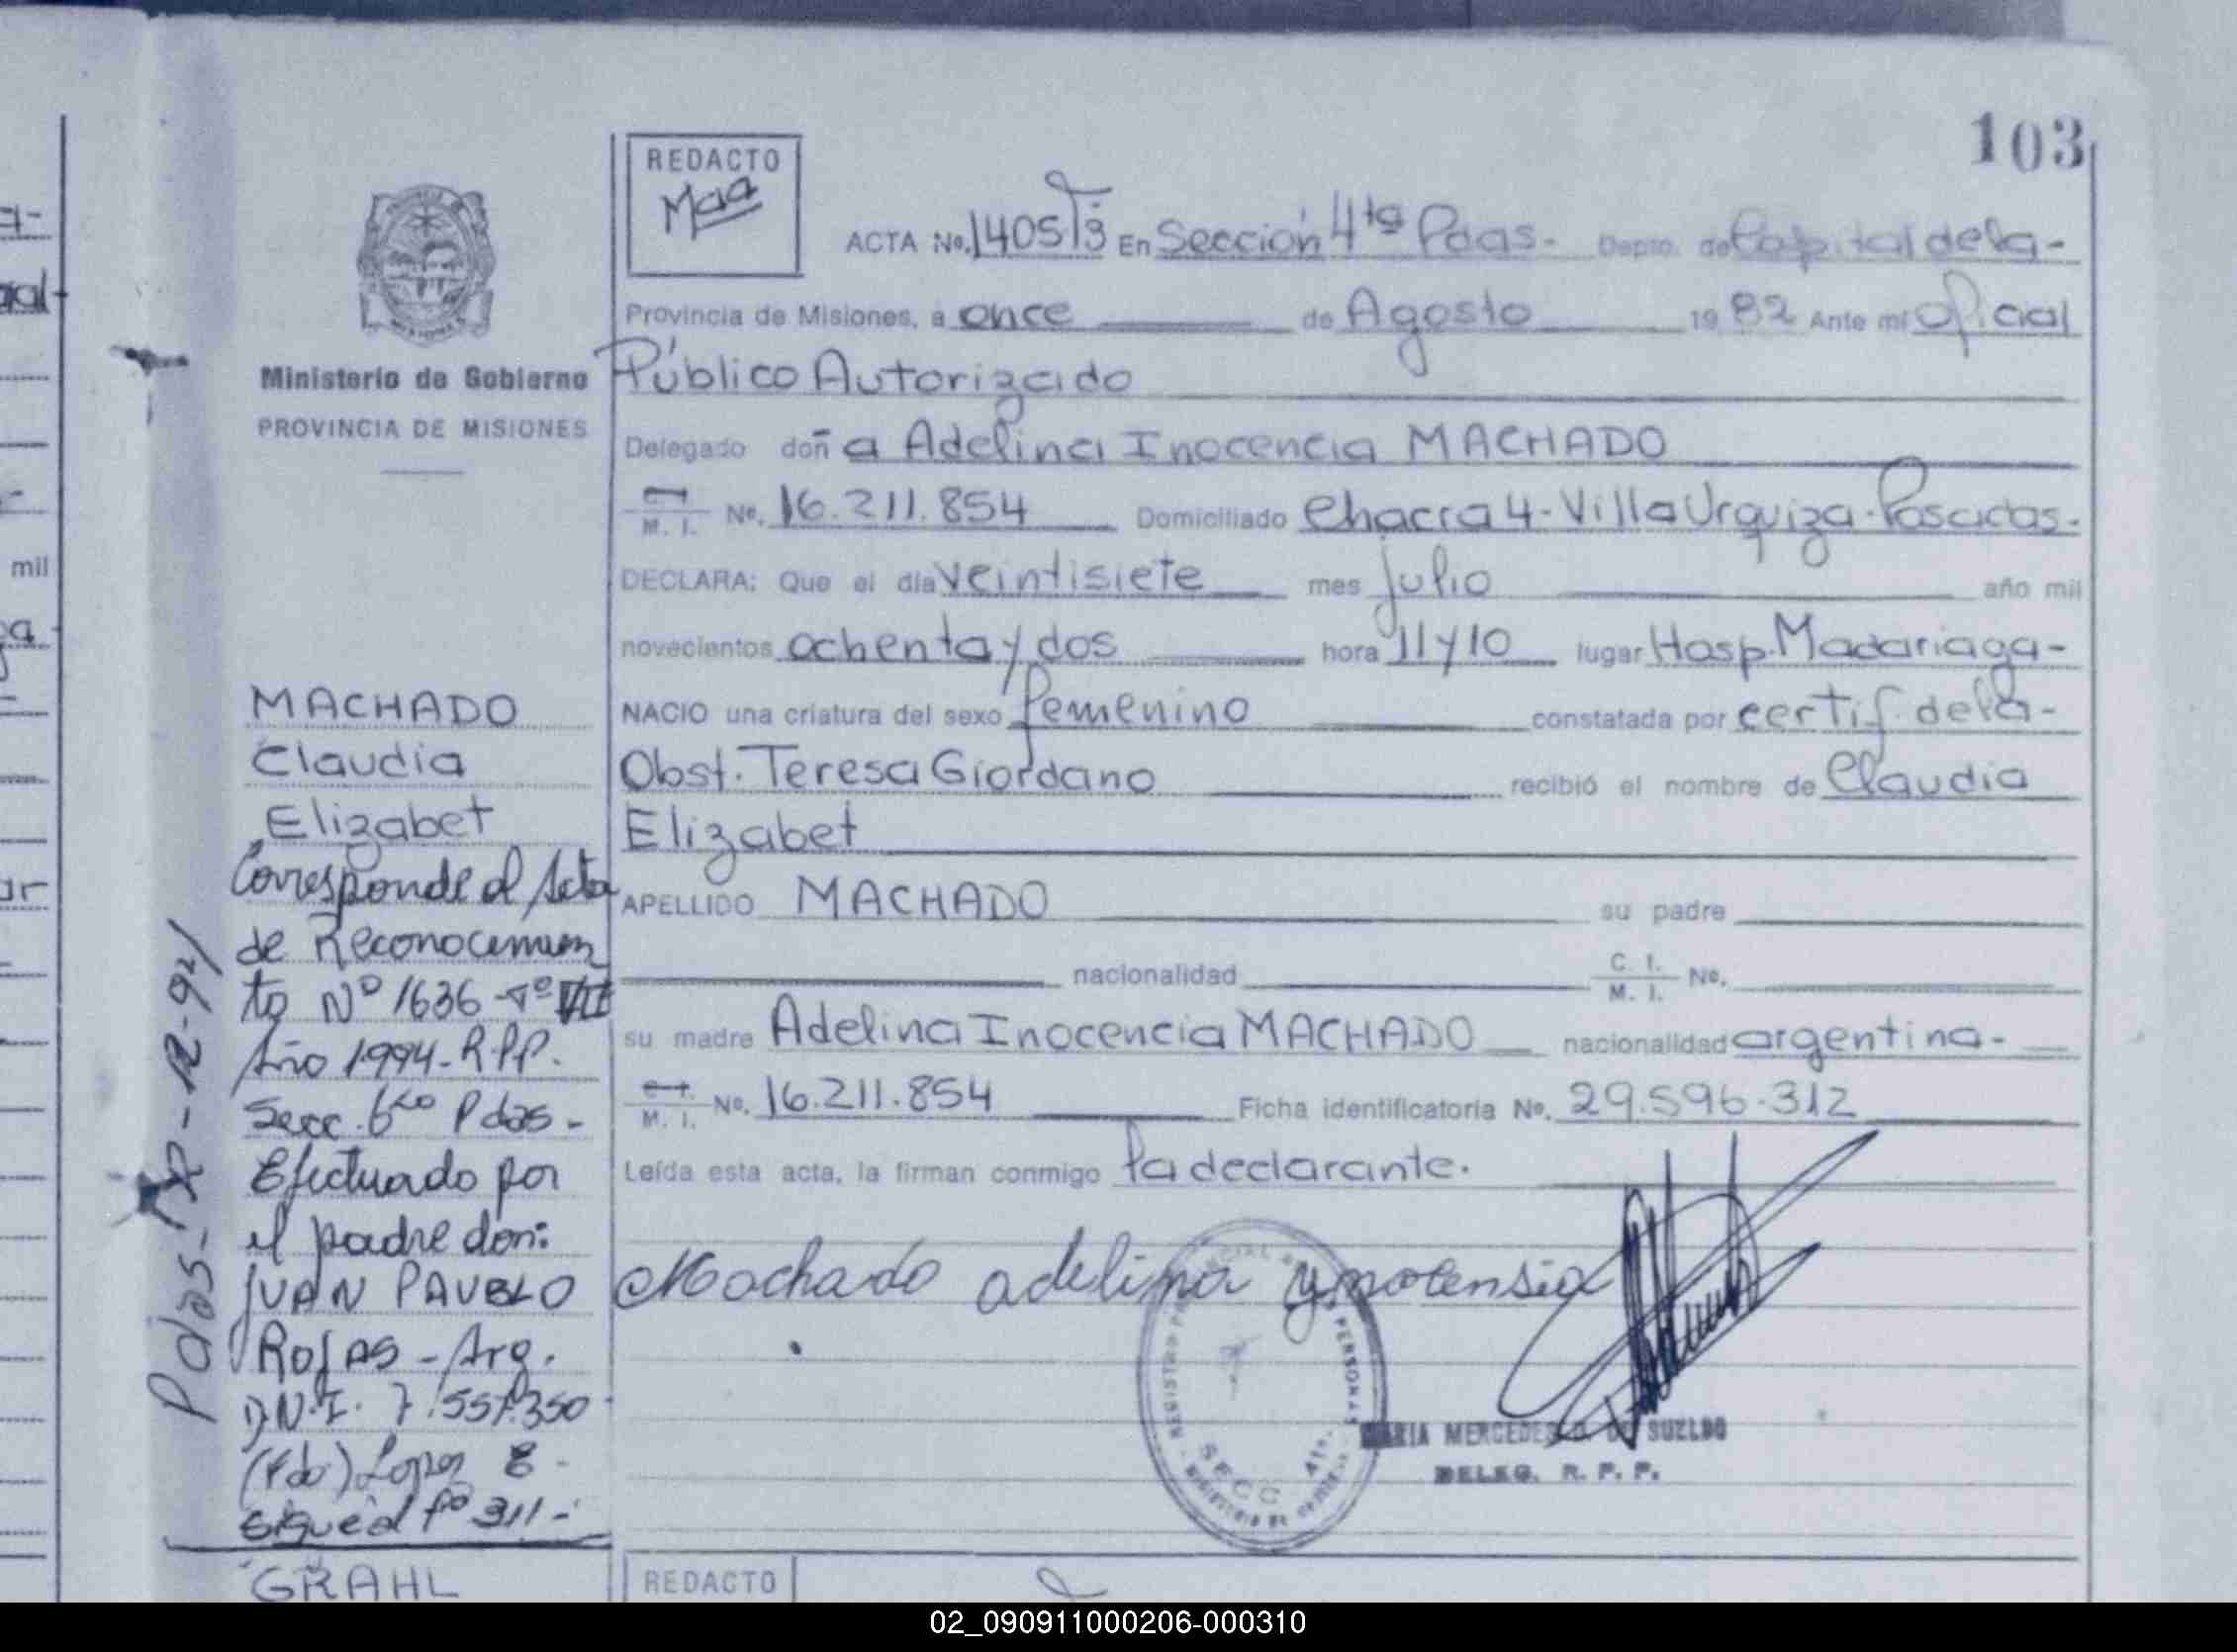 103
REDACTO
Maa
ACTA No. 1405 T3 En Sección 4ta Pdas. Depto. de Capital de la-
Provincia de Misiones, a once de Agosto 1982 Ante mi Oficial
Público Autorizado
Delegado doña Adelina Inocencia MACHADO
M. I. No. 16.211.854 Domiciliado Chacra 4-Villa Urquiza-Posadas.
DECLARA: Que el día veintisiete mes julio año mil
novecientos ochenta y dos hora 11 y 10 lugar Hosp. Madariaga-
NACIO una criatura del sexo femenino constatada por certif. de la-
Obst. Teresa Giordano recibió el nombre de Claudia
Elizabet
APELLIDO MACHADO su padre
nacionalidad C. I. M. I. No.
su madre Adelina Inocencia MACHADO nacionalidad argentina-
M. I. No. 16.211.854 Ficha identificatoria No. 29.596.312
Leída esta acta, la firman conmigo la declarante.
Machado adelina ynotensia
SECC 4ta.
MARIA MERCEDES DE SUELDO
DELEG. R. P. P.
Ministerio de Gobierno
PROVINCIA DE MISIONES
MACHADO
Claudia
Elizabet
Corresponde al Acta
de Reconocimien
to Nº 1636 Tº VII
Año 1994-R.P.P.
Secc. 6ta Pdas-
Efectuado por
el padre don:
JUAN PAUBLO
ROJAS - Arg.
D.N.I. 7.551.350
(Fdo) Lopez E-
sigue al fº 311-
Pdas-
GRAHL
REDACTO
mil
02_090911000206-000310